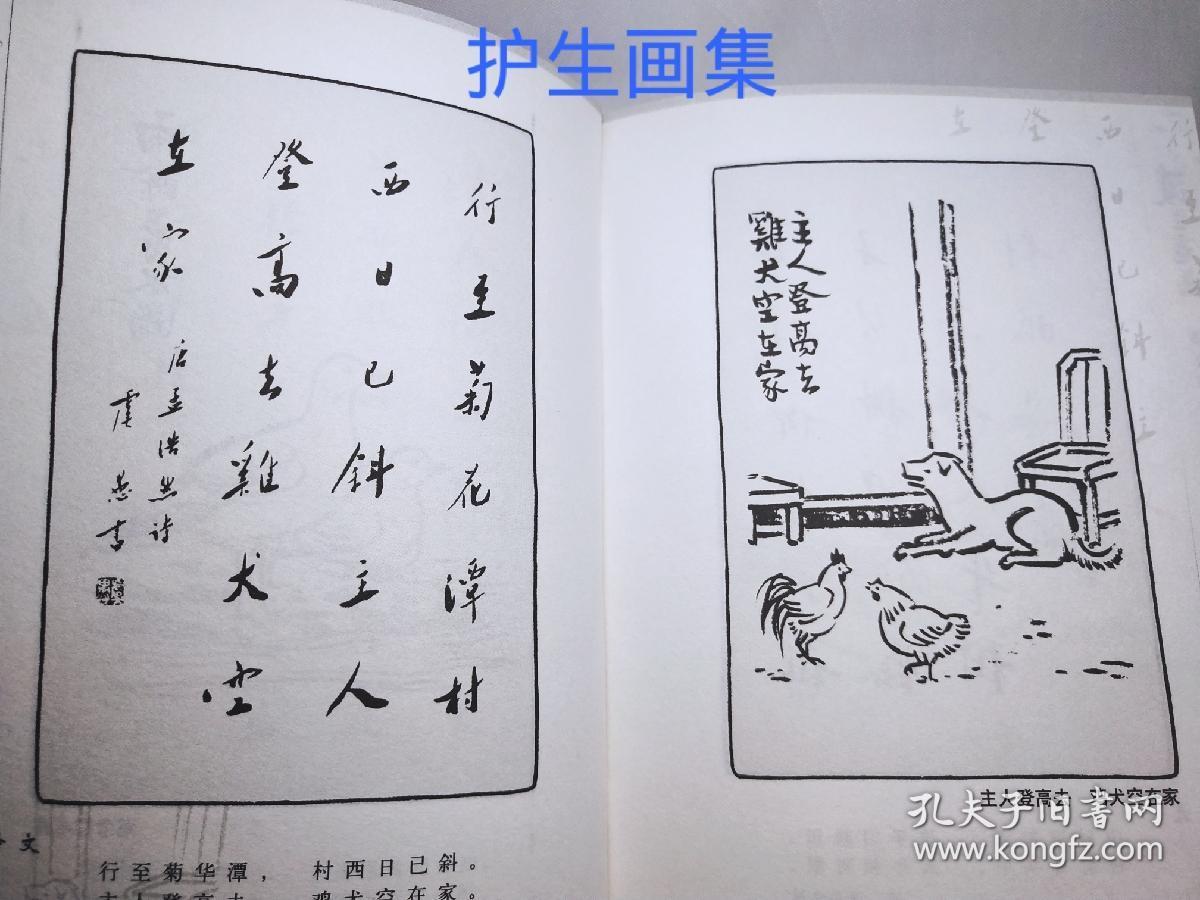 护生画集
行至菊花潭村
西日已斜主人
登高去雞犬空
在家
唐孟浩然诗
虞愚书
主人登高去
雞犬空在家
主人登高去 鸡犬空在家
文
行至菊华潭， 村西日已斜。
主人登高去 鸡犬空在家。
孔夫子旧书网
www.kongfz.com